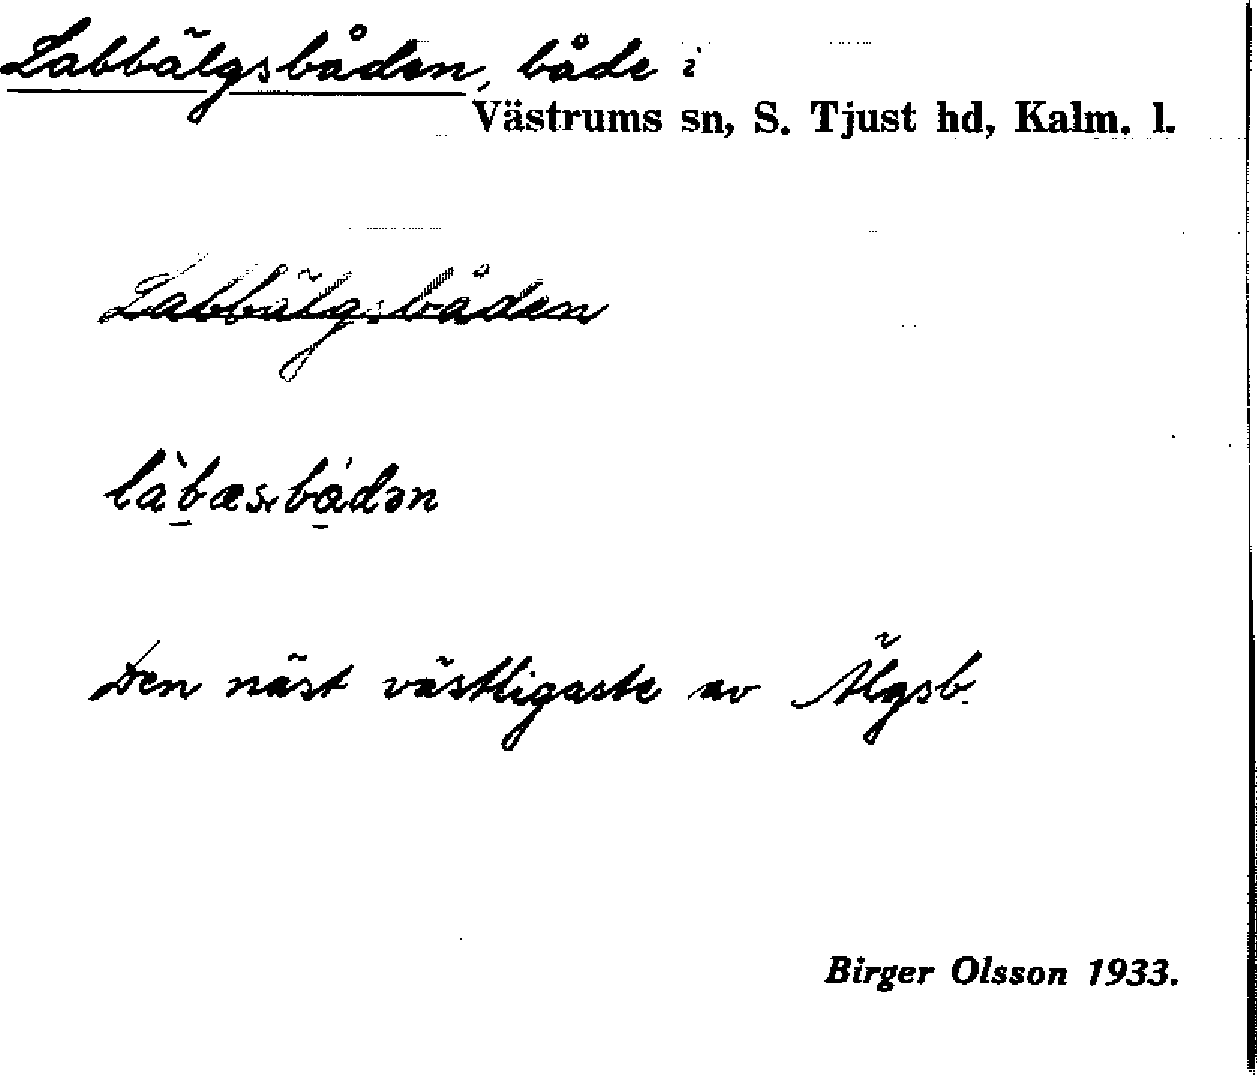 Labbälgsbåden, både i
Västrums sn, S. Tjust hd, Kalm. l.
Labbälgsbåden
Den näst västligaste av Älgsb.
Birger Olsson 1933.